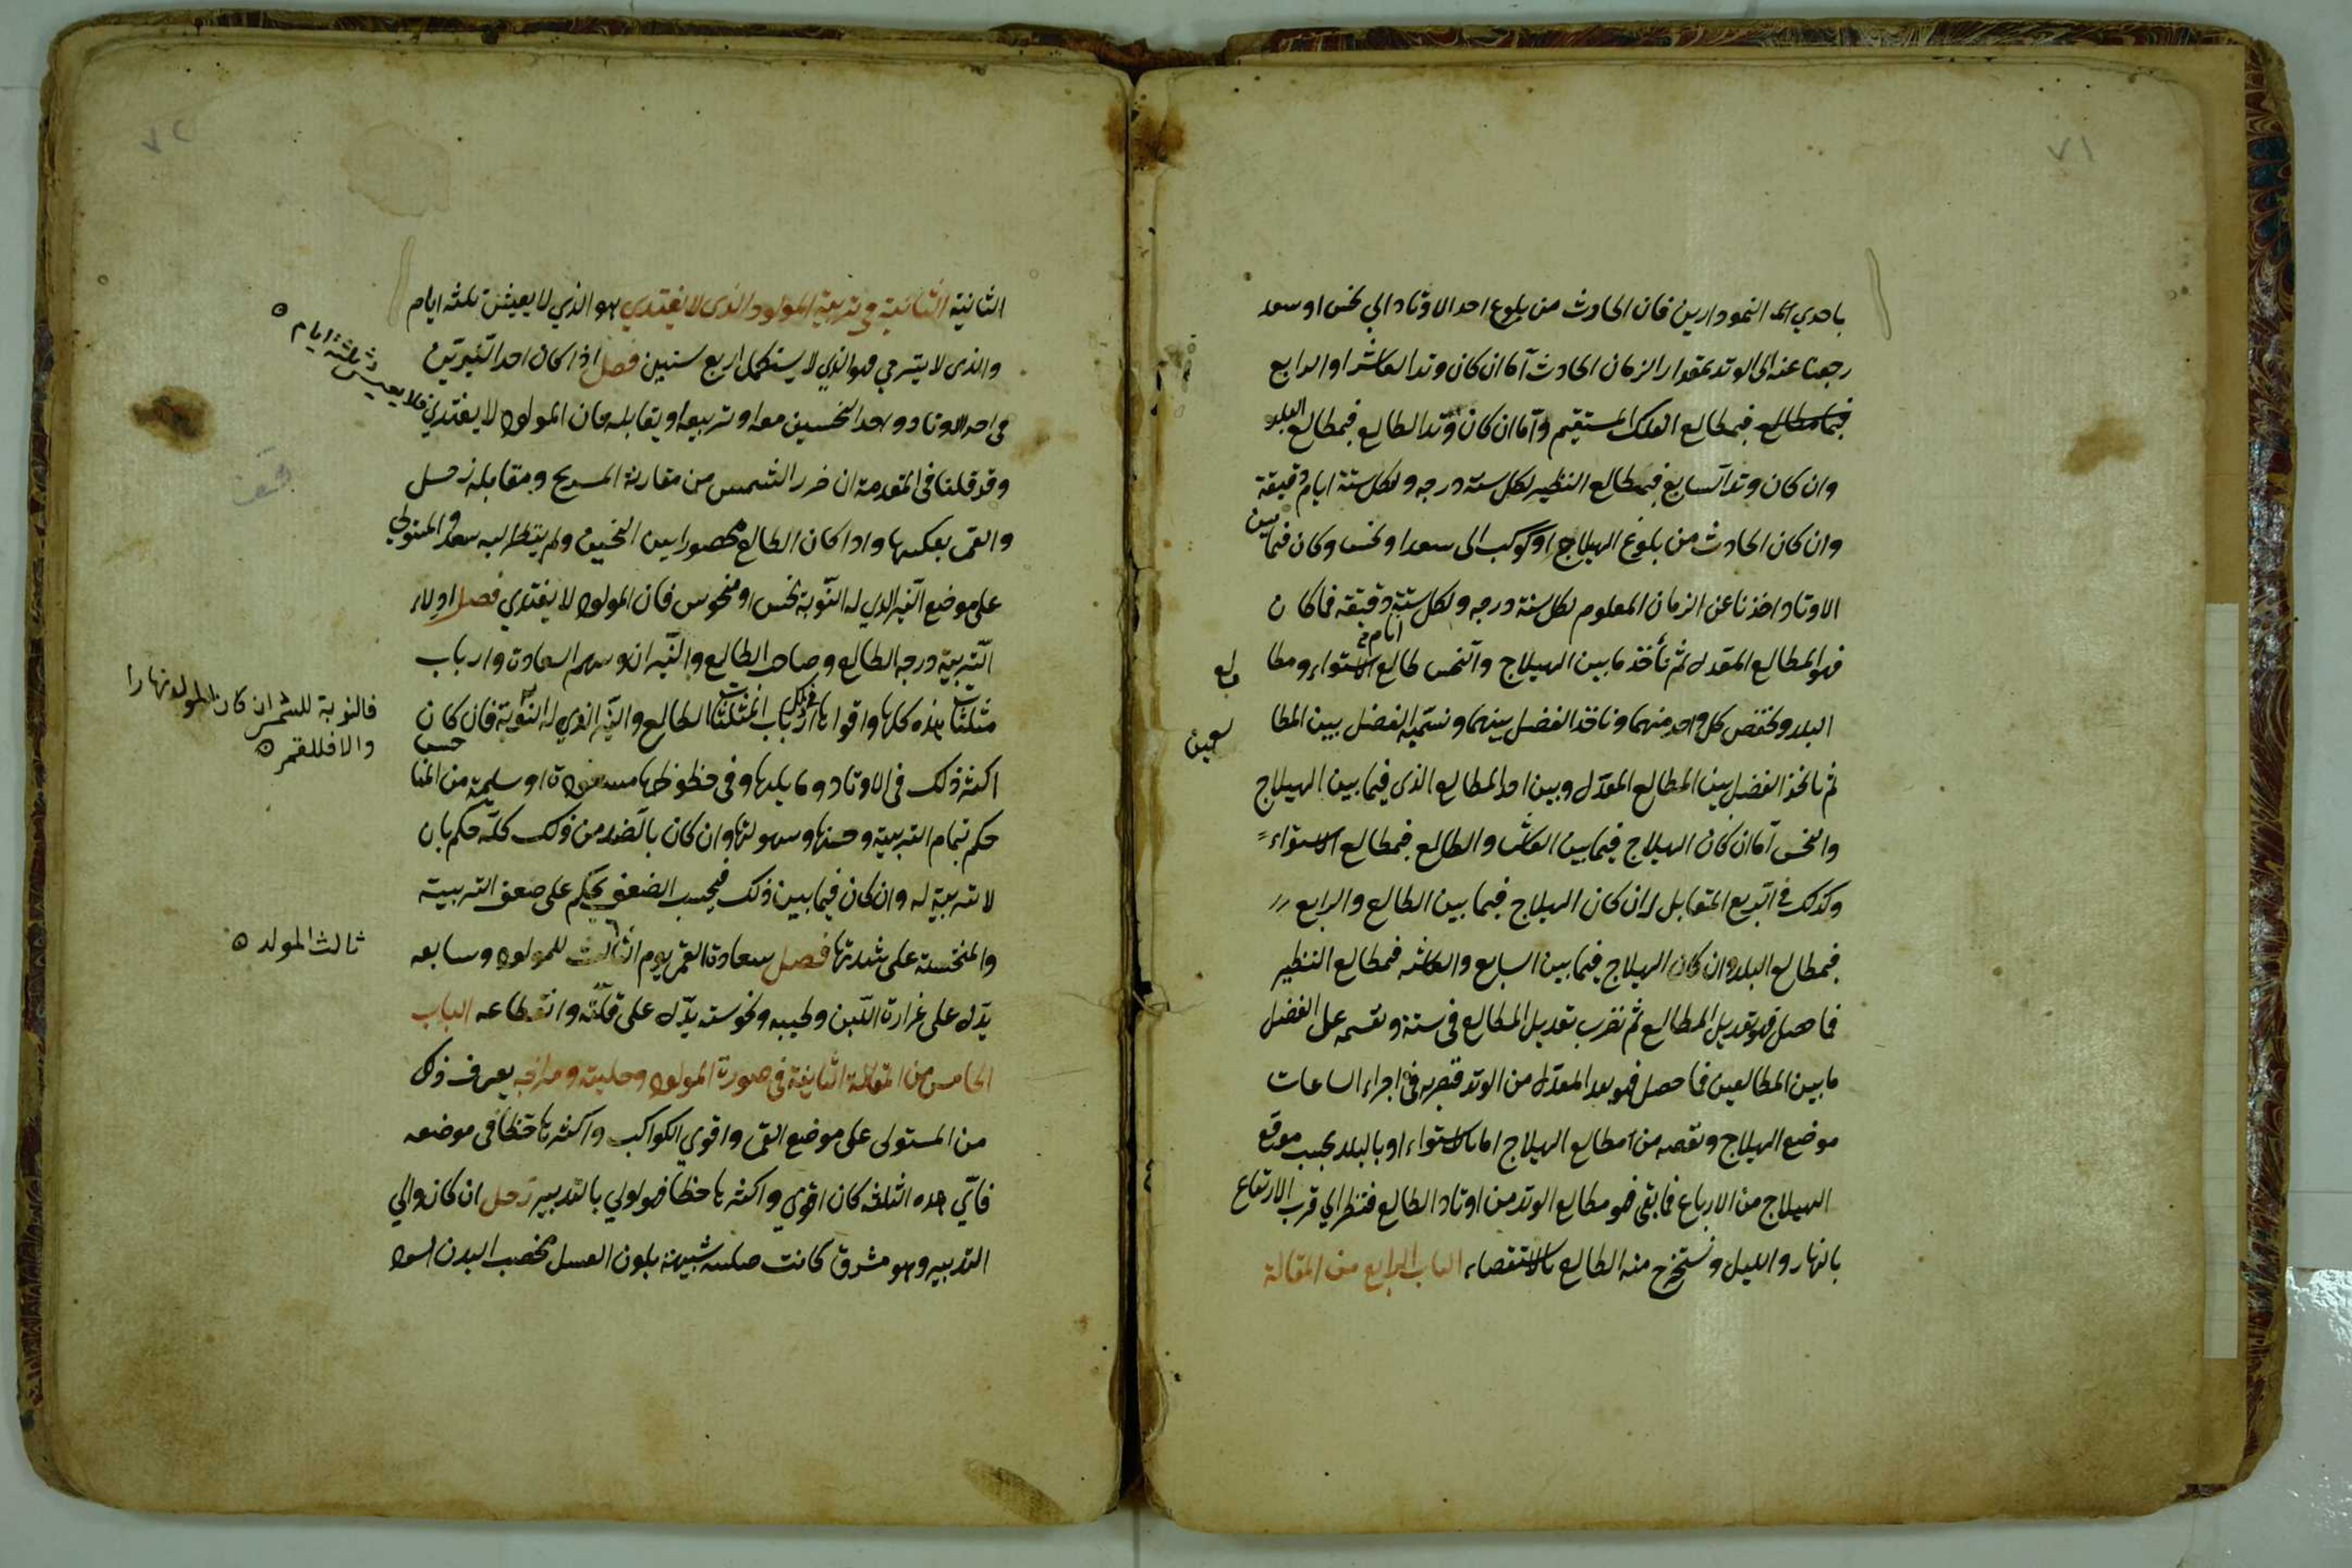 ٧١
باحدي النمودارين فان الحادث من بلوغ احد الاوتاد الي نحس او سعد
رجعنا عنه الى الوتد بمقدار الزمان الحادث اما ان كان وتد العاشر او الرابع
فبمطالع الفلك المستقيم واما ان كان وتد الطالع فبمطالع البلد
وان كان وتد السابع فبمطالع النظير لكل سنة درجه ولكل ستة ايام دقيقة
وان كان الحادث من بلوغ الهيلاج او كوكب الى سعد او نحس وكان فيما بين
الاوتاد اخذنا عن الزمان المعلوم لكل سنة درجه ولكل ستة ايام دقيقه فما كان
فهو المطالع المعدل ثم نأخذ ما بين الهيلاج والنحس بمطالع الاستواء ومطالع
البلد وننقص كل واحد منهما وناخذ الفضل بينهما ونسميه الفضل بين المطالعين
ثم ناخذ الفضل بين المطالع المعدل وبين احد المطالع الذى فيما بين الهيلاج
والنحس اما ان كان الهيلاج فيما بين العاشر والطالع فبمطالع الاستواء
وكذلك في الربع المتقابل وان كان الهيلاج فيما بين الطالع والرابع
فبمطالع البلد وان كان الهيلاج فيما بين السابع والعاشر فبمطالع النظير
فما حصل فهو تعديل المطالع ثم نضرب تعديل المطالع فى ستة ونقسمه على الفضل
ما بين المطالعين فما حصل فهو بعد المعدل من الوتد فنضربه فى اجزاء الساعات
موضع الهيلاج ونقصه من مطالع الهيلاج اما بالاستواء او بالبلد بحسب موقع
الهيلاج من الارباع فما بقى فهو مطالع الوتد من اوتاد الطالع فننظر الي قرب الارتفاع
بالنهار والليل ونستخرج منه الطالع بالاستقصاء الباب الرابع من المقالة
٧٢
الثانية الثانية في تربية المولود الذى لا يغتدي هو الذي لا يعيش ثلثه ايام
والذى لا يتربي فهو الذي لا يستكمل اربع سنين فصل اذا كان احد النيرين
في احد الاوتاد واحد النحسين معه او تربيعه او يقابله فان المولود لا يغتدي
فلا يعيش ثلثة ايام
وقد قلنا فى المقدمة ان ضرر الشمس من مقارنة المريخ ومقابله زحل
والقمر بعكسها واذا كان الطالع محصورا بين النحسين ولم ينظر اليه سعد والمتولي
على موضع النير الذي له النوبة نحس او منحوس فان المولود لا يغتدي فصل اولاد
التربية درجه الطالع وصاحب الطالع والنيران وسهم السعادة وارباب
مثلثات هذه كلها واقواها ارباب مثلثات الطالع والنير الذي له النوبة فان كان
فالنوبة للشمس ان كان المولد نهارا
والا فللقمر
اكثر ذلك فى الاوتاد وما يليها وفى حظوظها مسعودة او سليمة من المناحس
حكم بتمام التربية وحسنها وسهولتها وان كان بالضد من ذلك كله حكم بان
لا تربية له وان كان فيما بين ذلك فبحسب الضعف يحكم على ضعف التربية
والمنحسة على شدتها فصل سعادة القمر يوم الثالث للمولود وسابعه
ثالث المولد
يدل على غزارة اللبن وطيبه ونحوسته يدل على قلته وانقطاعه الباب
الخامس من المقالة الثانية فى صورة المولود وحليته ومزاجه يعرف ذلك
من المستولى على موضع القمر واقوى الكواكب واكثرها حظا فى موضعه
فأي هذه الثلثه كان اقوى واكثرها حظا فهو اولي بالتدبير زحل ان كان والي
التدبير وهو مشرق كانت حليته شبيهة بلون العسل مخصب البدن اسود